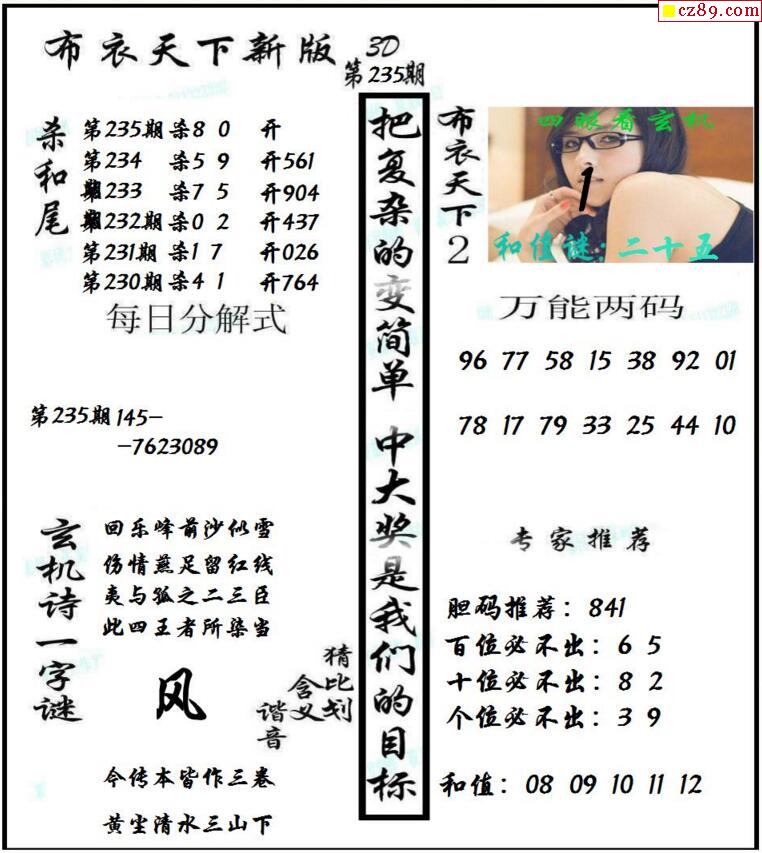 cz89.com
布衣天下新版
3D
第235期
杀和尾
第235期 杀8 0 开
第234 杀5 9 开561
期233 杀7 5 开904
第232期 杀0 2 开437
第231期 杀1 7 开026
第230期 杀4 1 开764
每日分解式
第235期 145-
-7623089
玄机诗一字谜
回乐峰前沙似雪
伤情燕足留红线
夷与孤之二三臣
此四王者所染当
风
猜比划
含义
谐音
今传本皆作三卷
黄尘清水三山下
把复杂的变简单 中大奖是我们的目标
布衣天下2
四眼看玄机
1
和值谜:二十五
万能两码
96 77 58 15 38 92 01
78 17 79 33 25 44 10
专家推荐
胆码推荐: 841
百位必不出: 6 5
十位必不出: 8 2
个位必不出: 3 9
和值: 08 09 10 11 12